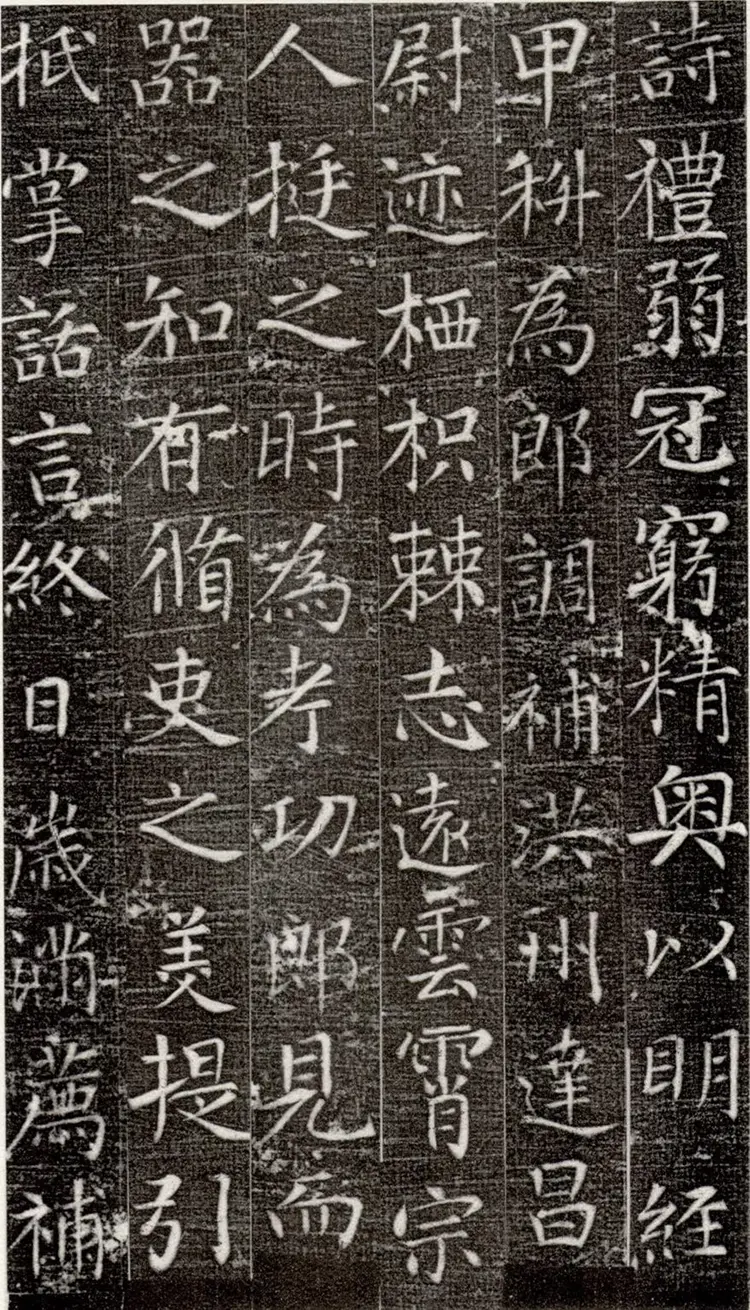 詩禮弱冠窮精奥以明經
甲科為郎調補洪州達昌
尉迹栖枳棘志遠雲霄宗
人挺之時為考功郎見而
器之知有脩吏之美提引
抵掌話言終日歲滿薦補